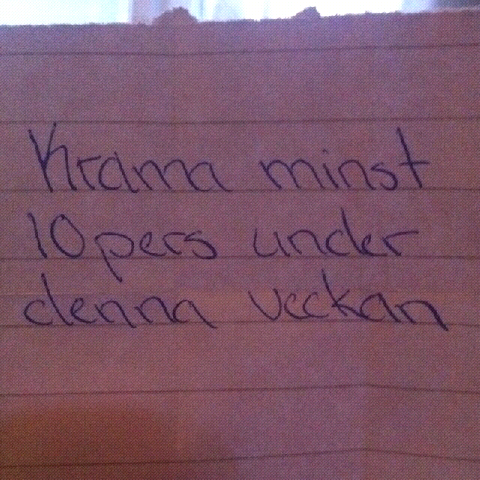 Krama minst
10 pers under
denna veckan